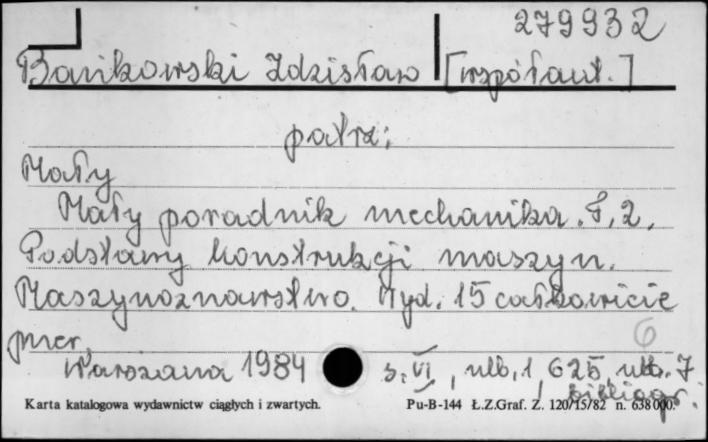 279932
Bańkowski Zdzisław [współaut.]
patrz:
Mały
Mały poradnik mechanika. T. 2.
Podstawy konstrukcji maszyn.
Maszynoznawstwo. Wyd. 15 całkowicie
6
przer.
Warszawa 1984 s. VI, nlb. 1, 625, nlb. 7
bibliogr.
Karta katalogowa wydawnictw ciągłych i zwartych. Pu-B-144 Ł.Z.Graf. Z. 120/15/82 n. 638 000.